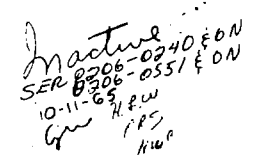 Inactive
SER 0206-0240 & ON
0206-0551 & ON
10-11-65
H.L.W